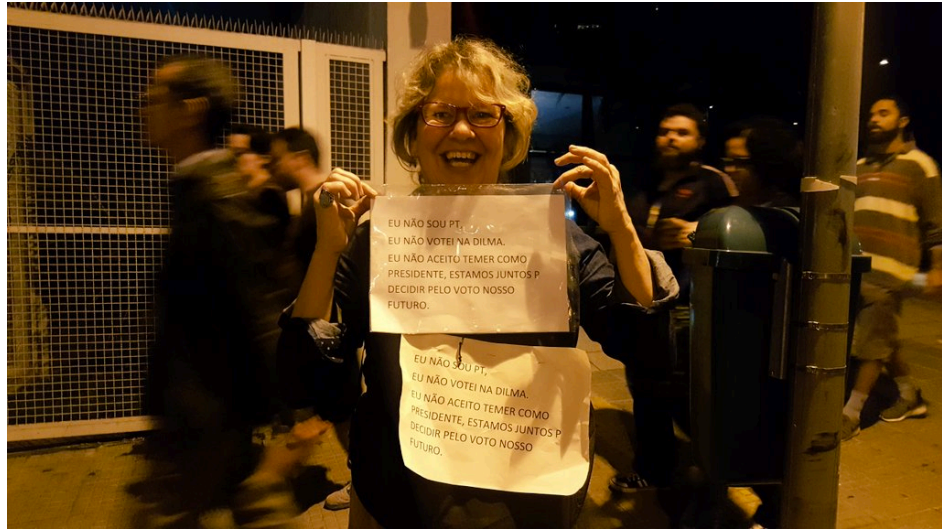 EU NÃO SOU PT,
EU NÃO VOTEI NA DILMA.
EU NÃO ACEITO TEMER COMO
PRESIDENTE, ESTAMOS JUNTOS P
DECIDIR PELO VOTO NOSSO
FUTURO.
EU NÃO SOU PT,
EU NÃO VOTEI NA DILMA.
EU NÃO ACEITO TEMER COMO
PRESIDENTE, ESTAMOS JUNTOS P
DECIDIR PELO VOTO NOSSO
FUTURO.